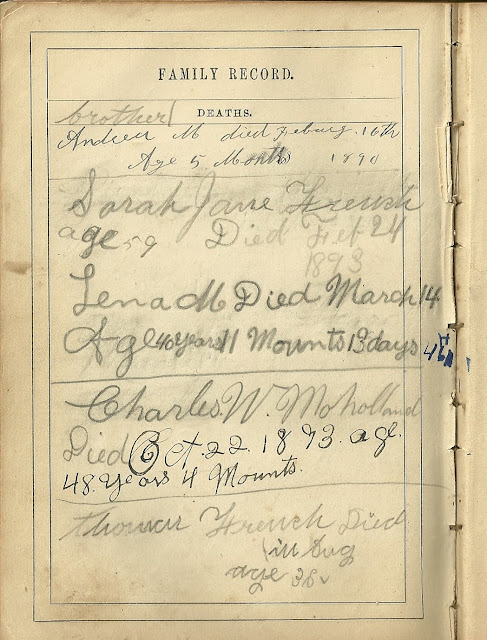 FAMILY RECORD.
DEATHS.
brother
Andrew M died Feburg. 16th
Age 5 Months 1890
Sarah Jane French
age 59 Died Feb 24
1893
Lena M Died March 14
Age 40 years 11 Mounts 13 days
Charles. W. Moholland
Died Oct. 22. 1893. age.
48. years 4 Mounts.
Thomas French Died
in Aug
age 38